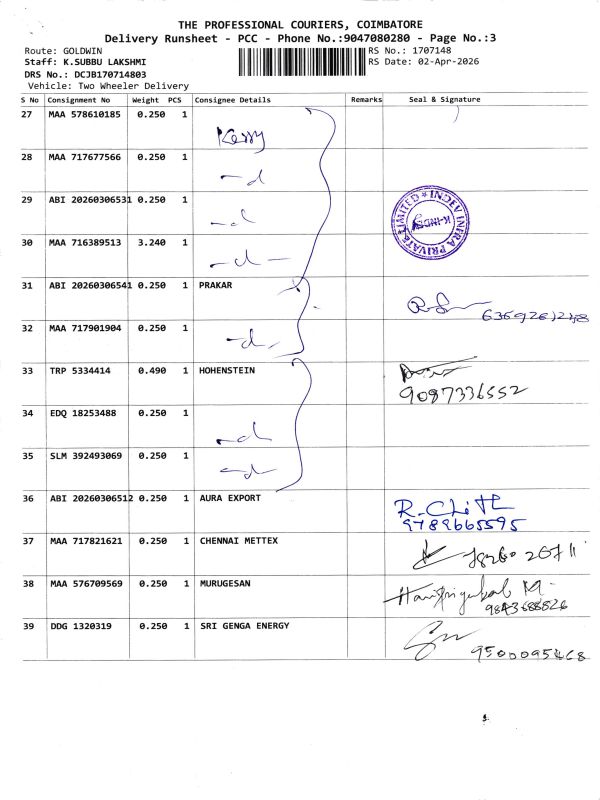 THE PROFESSIONAL COURIERS, COIMBATORE
Delivery Runsheet - PCC - Phone No.:9047080280 - Page No.:3
Route: GOLDWIN
RS No.: 1707148
Staff: K.SUBBU LAKSHMI
RS Date: 02-Apr-2026
DRS No.: DCJB170714803
Vehicle: Two Wheeler Delivery
S No Consignment No Weight PCS Consignee Details Remarks Seal & Signature
27 MAA 578610185 0.250 1
Kerry
28 MAA 717677566 0.250 1
-d
29 ABI 20260306531 0.250 1
-d
30 MAA 716389513 3.240 1
-d-
INDEV INFRA PRIVATE LIMITED
31 ABI 20260306541 0.250 1 PRAKAR
32 MAA 717901904 0.250 1
-d
33 TRP 5334414 0.490 1 HOHENSTEIN
9087336552
34 EDQ 18253488 0.250 1
-d
35 SLM 392493069 0.250 1
-d
36 ABI 20260306512 0.250 1 AURA EXPORT
9789665595
37 MAA 717821621 0.250 1 CHENNAI METTEX
38 MAA 576709569 0.250 1 MURUGESAN
39 DDG 1320319 0.250 1 SRI GENGA ENERGY